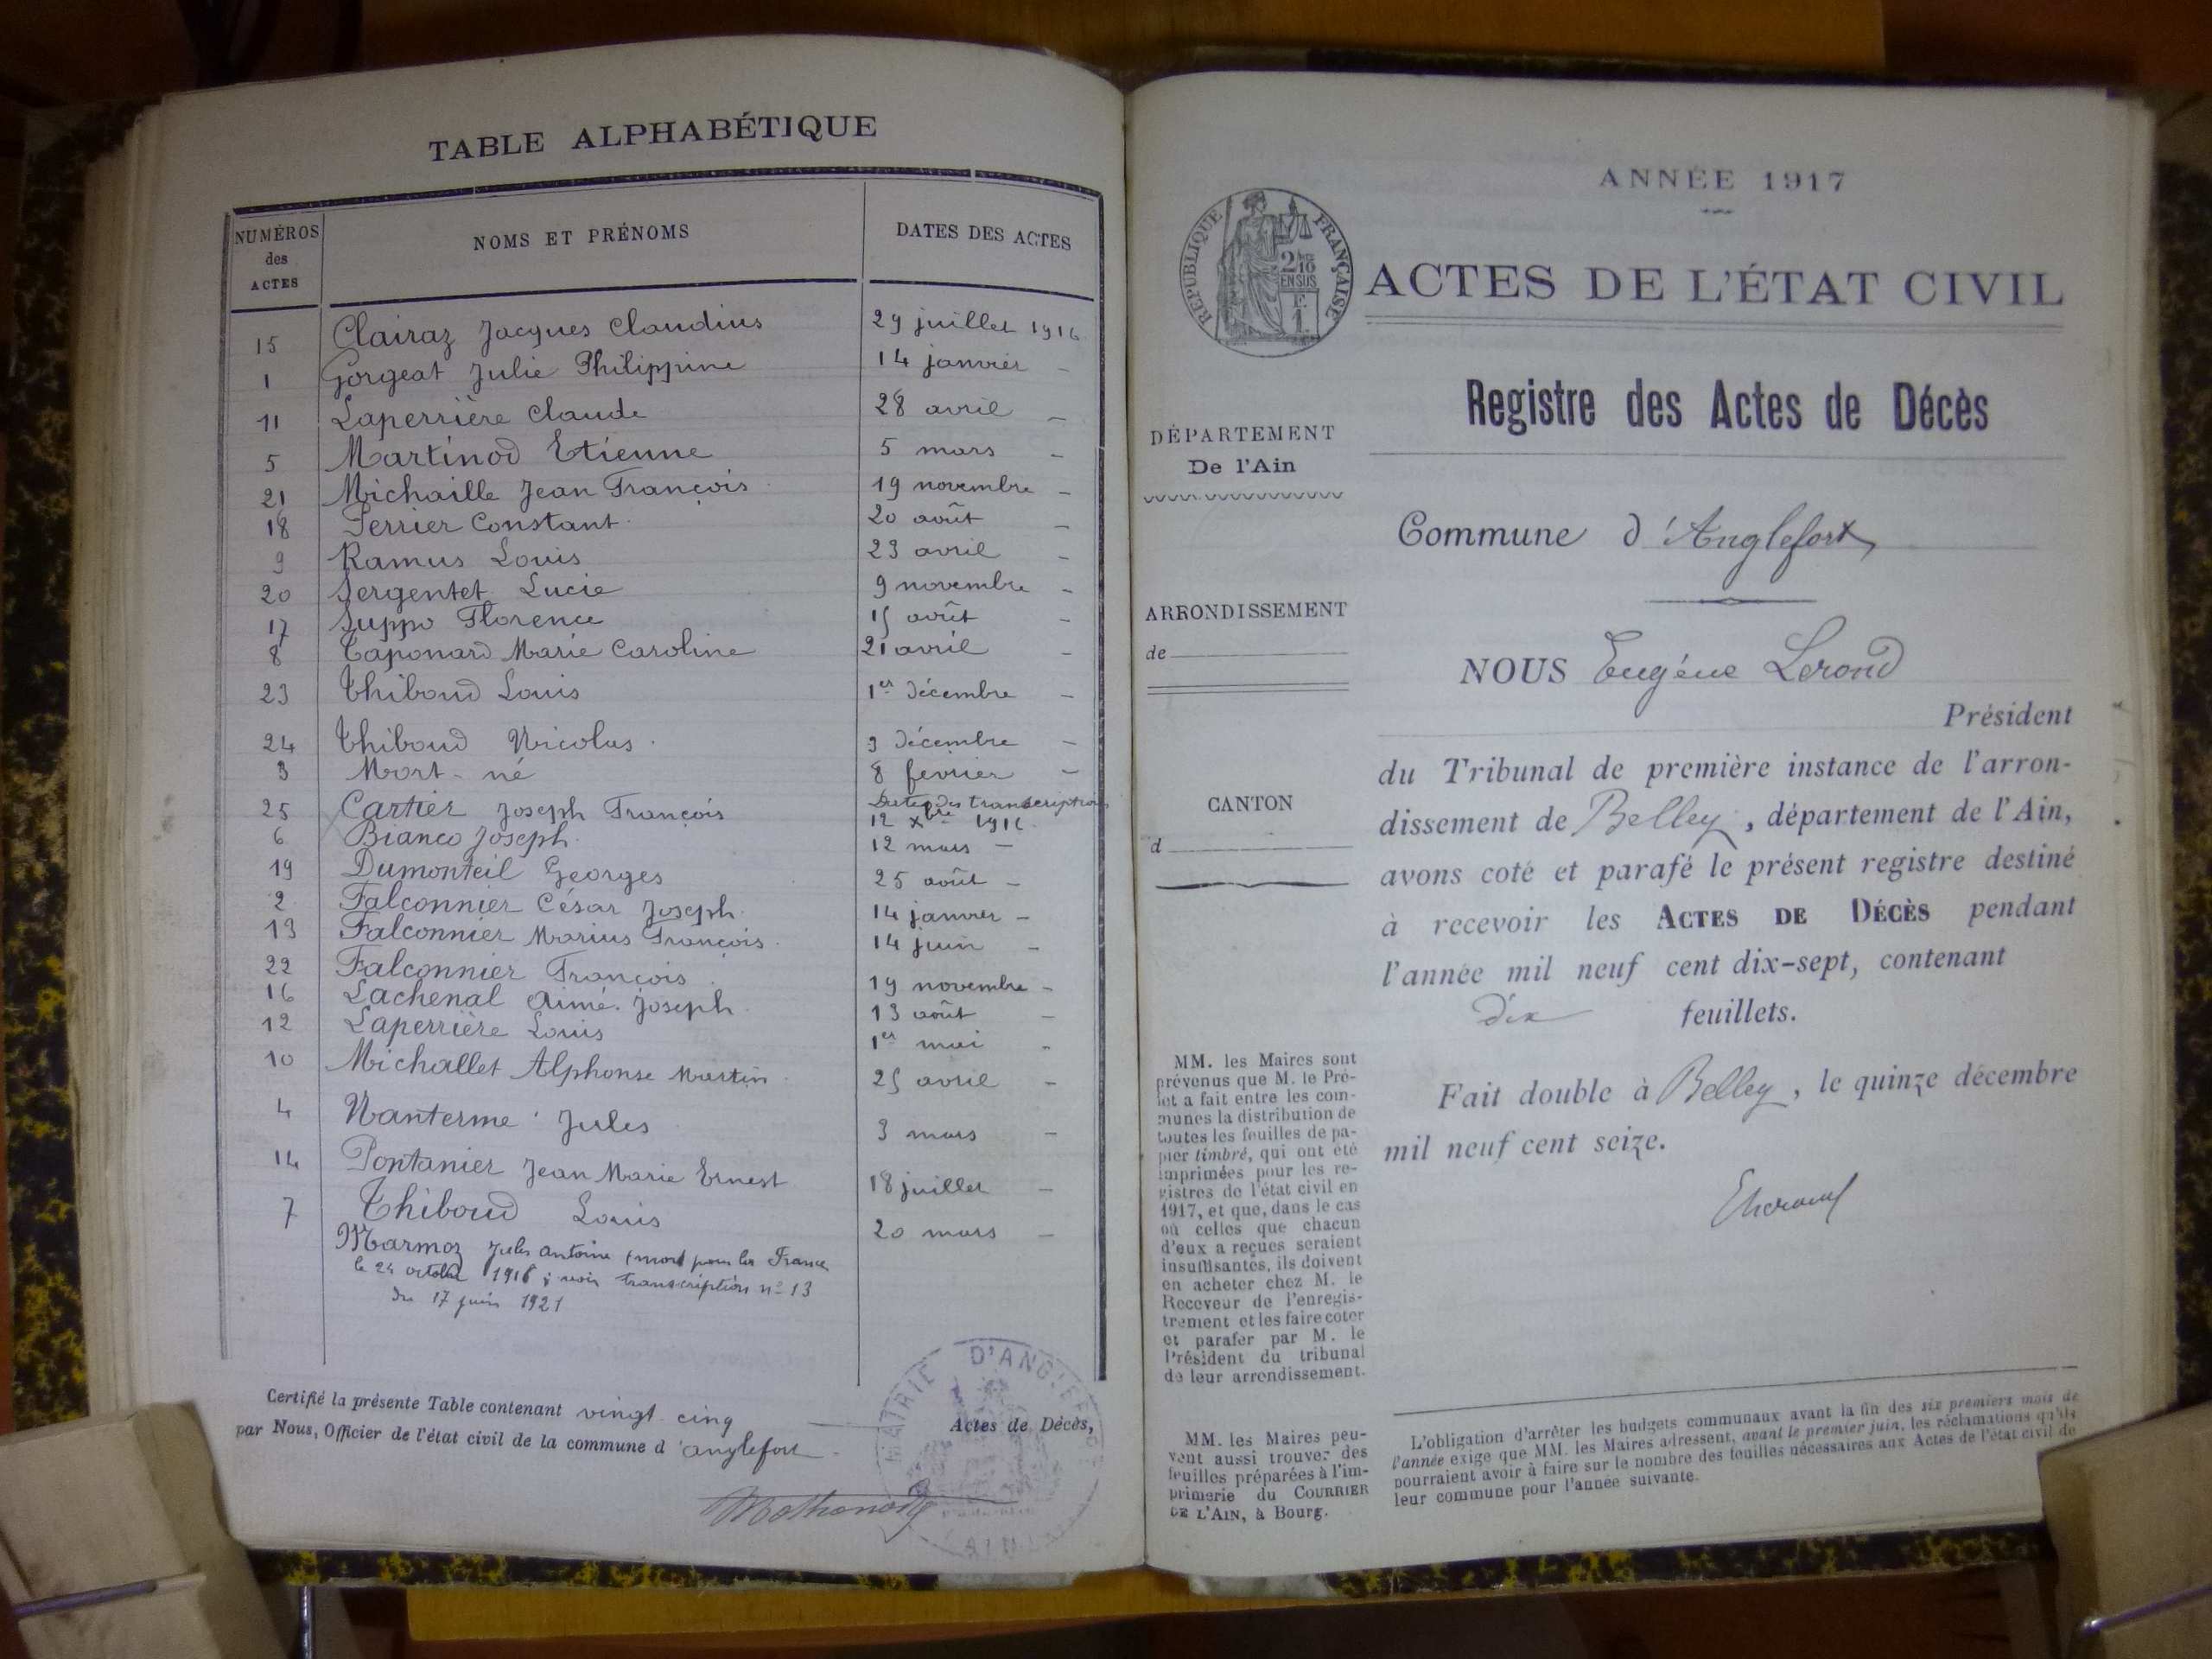 TABLE ALPHABÉTIQUE
NUMÉROS des ACTES NOMS ET PRÉNOMS DATES DES ACTES
15 Clairaz Jacques Claudius 29 juillet 1916
1 Gorgeat Julie Philippine 14 janvier -
11 Laperrière Claude 28 avril -
5 Martinod Etienne 5 mars -
21 Michaille Jean François 19 novembre -
18 Perrier Constant 20 août -
9 Ramus Louis 23 avril -
20 Sergentet Lucie 9 novembre -
17 Suppo Florence 15 août -
8 Taponard Marie Caroline 21 avril -
23 Thiboud Louis 1er décembre -
24 Thiboud Nicolas 3 décembre -
3 Mort-né 8 fevrier -
Dates des transcriptions
25 Cartier Joseph François 12 Xbre 1916
6 Bianco Joseph 12 mars -
19 Dumonteil Georges 25 août -
2 Falconnier César Joseph 14 janvier -
13 Falconnier Marius François 14 juin -
22 Falconnier François 19 novembre -
16 Lachenal Aimé Joseph 13 août -
12 Laperrière Louis 1er mai -
10 Michallet Alphonse Martin 25 avril -
4 Nanterme Jules 3 mars -
14 Pontanier Jean Marie Ernest 18 juillet -
7 Thiboud Louis 20 mars -
Marmoz Jules Antoine (mort pour la France
le 24 octobre 1916 ; voir transcription n° 13
du 17 juin 1921
Certifié la présente Table contenant vingt cinq Actes de Décès,
par Nous, Officier de l'état civil de la commune d'Anglefort
MAIRIE D'ANGLEFORT
AIN
ANNÉE 1917
RÉPUBLIQUE FRANÇAISE
2/10 EN SUS
F.
1
ACTES DE L'ÉTAT CIVIL
Registre des Actes de Décès
DÉPARTEMENT
De l'Ain
Commune d'Anglefort
ARRONDISSEMENT
de
NOUS Eugéne Lerond
Président
du Tribunal de première instance de l'arron-
dissement de Belley, département de l'Ain,
avons coté et parafé le présent registre destiné
à recevoir les ACTES DE DÉCÈS pendant
l'année mil neuf cent dix-sept, contenant
dix feuillets.
CANTON
d
Fait double à Belley, le quinze décembre
mil neuf cent seize.
MM. les Maires sont
prévenus que M. le Pré-
fet a fait entre les com-
munes la distribution de
toutes les feuilles de pa-
pier timbré, qui ont été
imprimées pour les re-
gistres de l'état civil en
1917, et que, dans le cas
où celles que chacun
d'eux a reçues seraient
insuffisantes, ils doivent
en acheter chez M. le
Receveur de l'enregis-
trement et les faire coter
et parafer par M. le
Président du tribunal
de leur arrondissement.
MM. les Maires peu-
vent aussi trouver des
feuilles préparées à l'im-
primerie du COURRIER
DE L'AIN, à Bourg.
L'obligation d'arrêter les budgets communaux avant la fin des six premiers mois de
l'année exige que MM. les Maires adressent, avant le premier juin, les réclamations qu'ils
pourraient avoir à faire sur le nombre des feuilles nécessaires aux Actes de l'état civil de
leur commune pour l'année suivante.